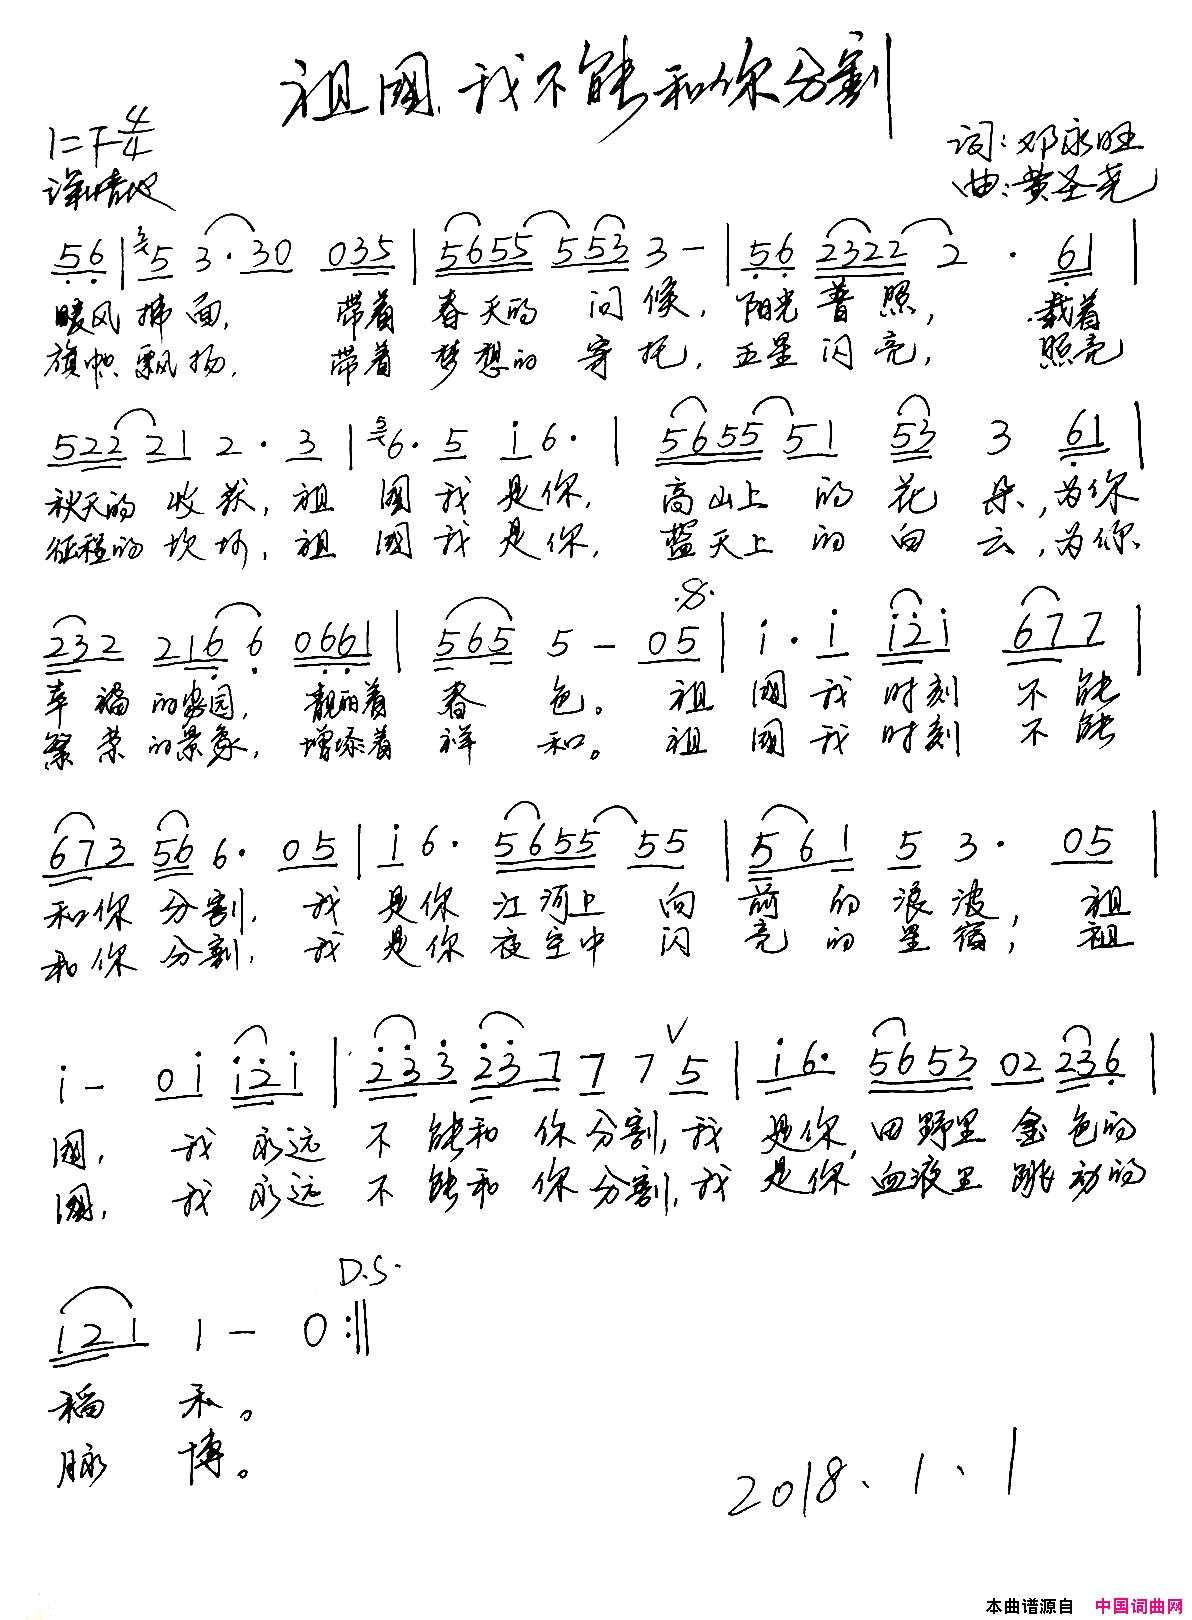 祖國,我不能和你分割
1=F 4/4
词:邓永旺
深情地
曲:黄圣尧
56 | 5 3·30 035 | 5655 553 3 - | 56 2322 2 · 61 |
暖风拂面, 带着春天的问候, 阳光普照, 载着
旗帜飘扬, 带着梦想的寄托, 五星闪亮, 照亮
522 21 2·3 | 6·5 i 6· | 5655 51 53 3 61 |
秋天的收获,祖國我是你, 高山上的花朵,为你
征程的坎坷,祖國我是你, 蓝天上的白云,为你
232 216 6 0661 | 565 5 - 05 | i·i i2i 677 |
幸福的家园, 靓丽着春色。 祖國我时刻不能
繁荣的景象, 增添着祥和。 祖國我时刻不能
673 56 6· 05 | i 6· 5655 55 | 561 5 3· 05 |
和你分割, 我是你江河上向前的浪波, 祖
和你分割, 我是你夜空中闪亮的星宿, 祖
i - 0i i2i | 233 237 7 7 5 | i6· 5653 02 236 |
國, 我永远不能和你分割,我是你,田野里金色的
國, 我永远不能和你分割,我是你,血液里跳动的
D.S.
i21 1 - 0 :||
稻禾。
脉博。
2018、1、1
本曲谱源自 中国词曲网